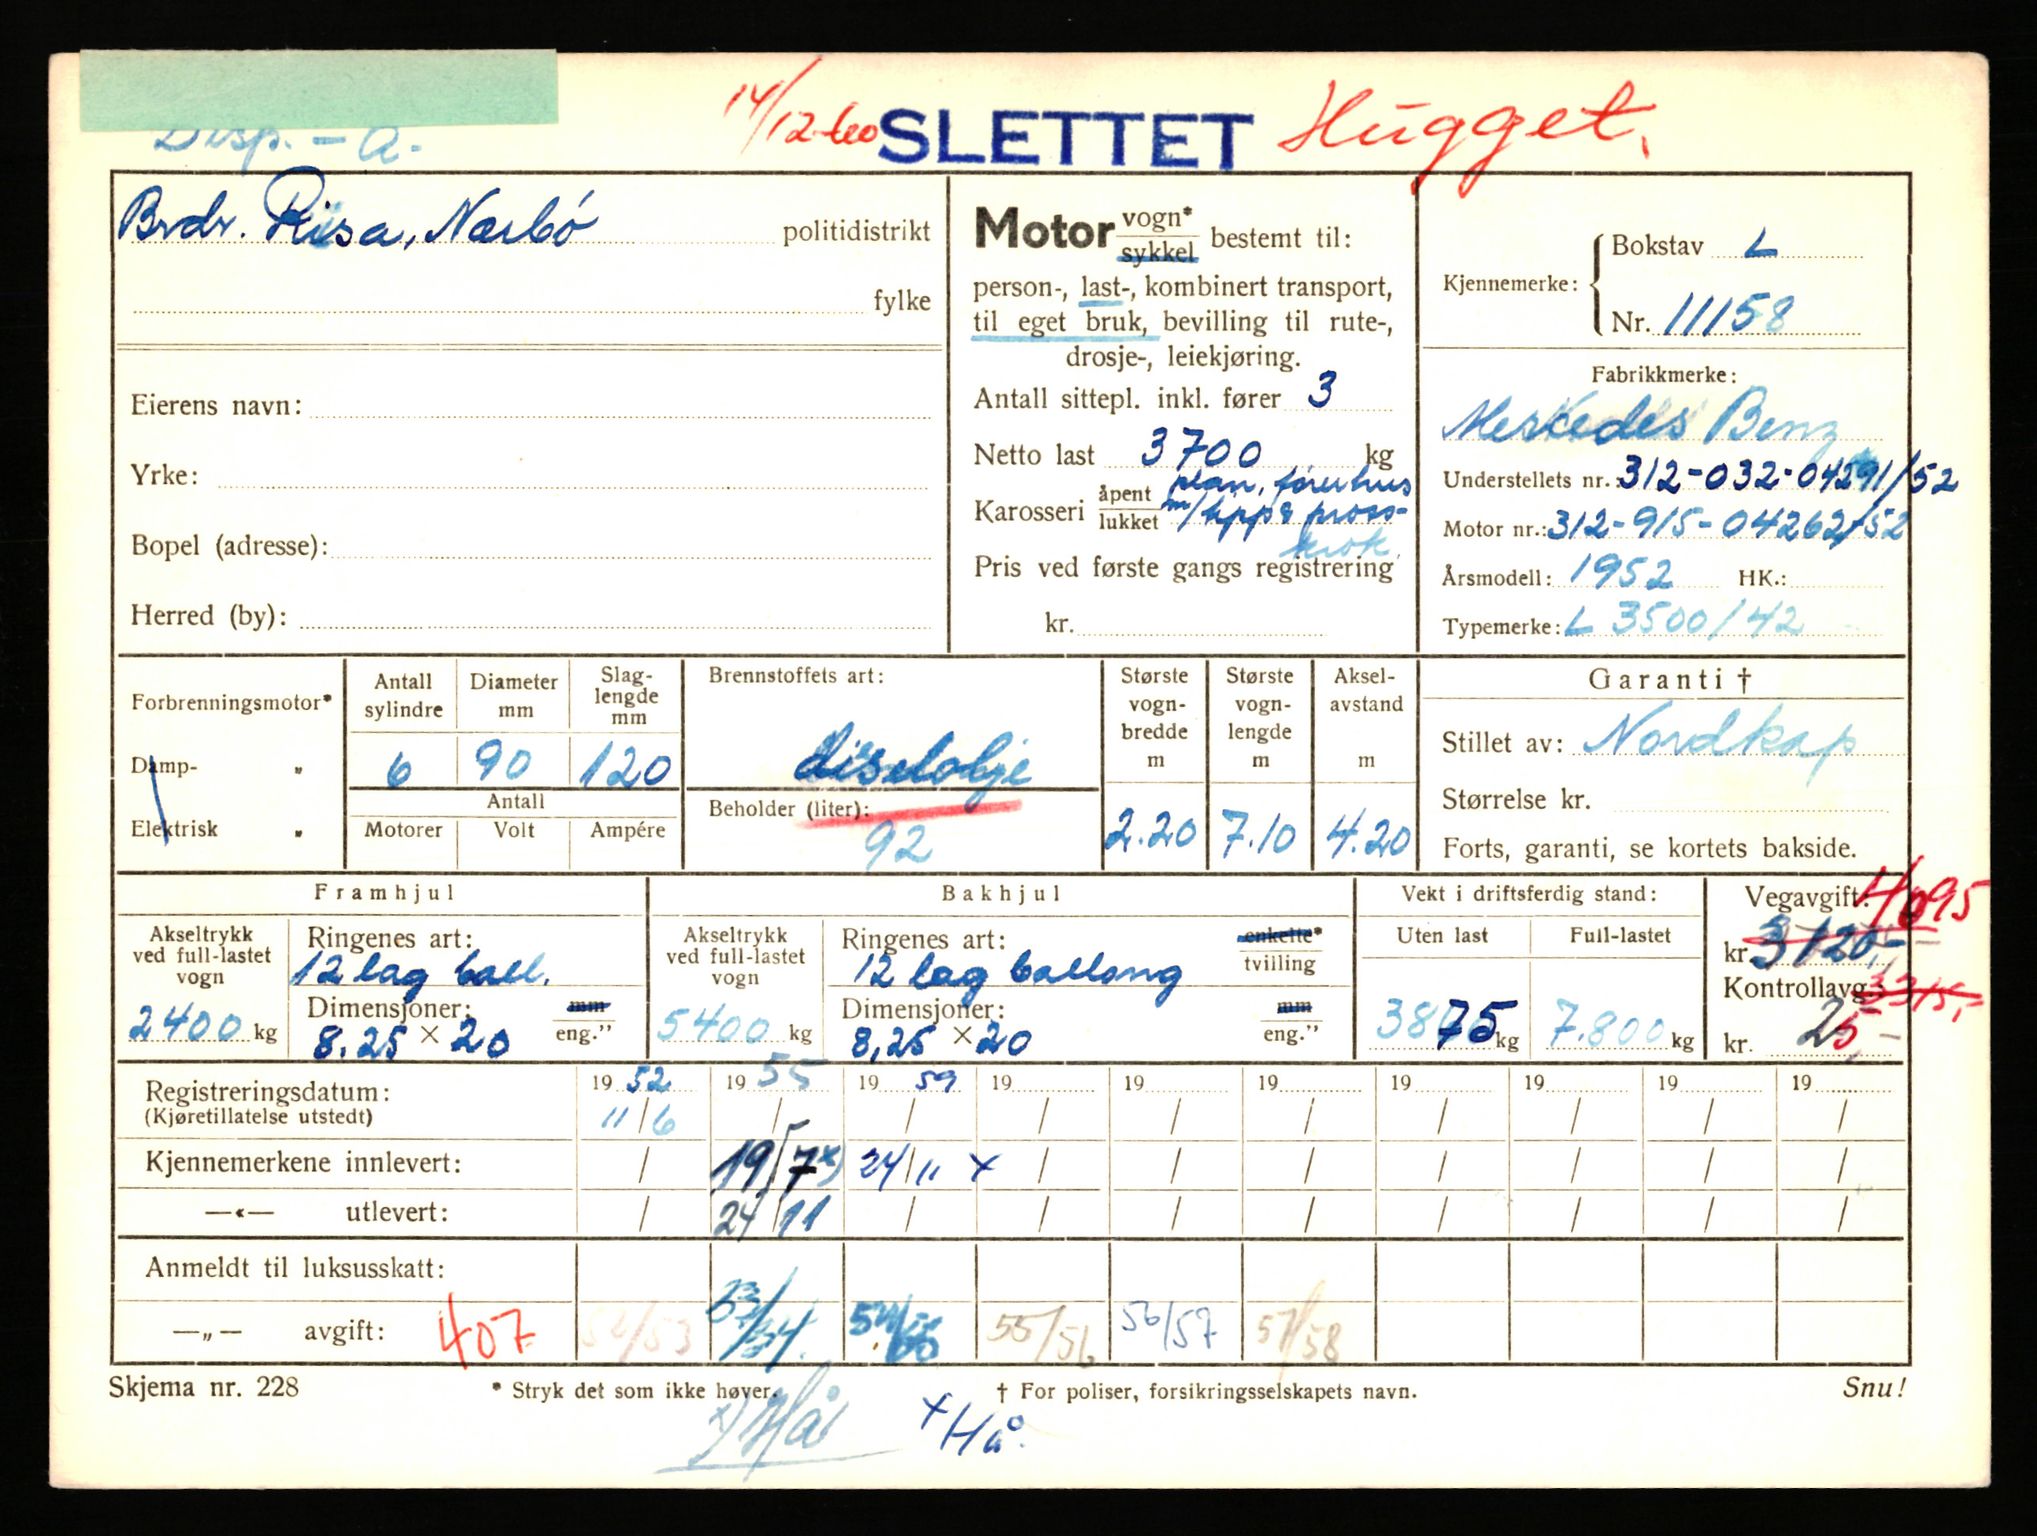 Disp. - A.
14/12-60 SLETTET Hugget.
Brdr. Risa, Nærbö politidistrikt
fylke
Eierens navn:
Yrke:
Bopel (adresse):
Herred (by):
Motor vogn* sykkel bestemt til:
person-, last-, kombinert transport,
til eget bruk, bevilling til rute-,
drosje-, leiekjøring.
Antall sittepl. inkl. fører 3
Netto last 3700 kg
Karosseri åpent lukket plan, førerhus
m/tipp & pross-
krok
Pris ved første gangs registrering
kr.
Kjennemerke: Bokstav L
Nr. 11158
Fabrikkmerke:
Merkedes Benz
Understellets nr.: 312-032-04291/52
Motor nr.: 312-915-04262/52
Årsmodell: 1952 HK.:
Typemerke: L 3500/42
Forbrenningsmotor*
Damp- „
Elektrisk „
Antall sylindre
Diameter mm
Slag-lengde mm
6 90 120
Antall
Motorer Volt Ampére
Brennstoffets art:
diselolje
Beholder (liter):
92
Største vogn-bredde m
2.20
Største vogn-lengde m
7.10
Aksel-avstand m
4.20
Garanti †
Stillet av: Nordkap
Størrelse kr.
Forts, garanti, se kortets bakside.
Framhjul
Akseltrykk ved full-lastet vogn
2400 kg
Ringenes art:
12 lag ball.
Dimensjoner: mm eng.”
8.25 × 20
Bakhjul
Akseltrykk ved full-lastet vogn
5400 kg
Ringenes art: enkelte* tvilling
12 lag ballong
Dimensjoner: mm eng.”
8,25 × 20
Vekt i driftsferdig stand:
Uten last Full-lastet
3875 kg 7.800 kg
Vegavgift: 4095
kr. 3120,-
Kontrollavg.: 3315,-
kr. 25,-
Registreringsdatum: 19 52 19 55 19 59 19 19 19 19 19 19 19
(Kjøretillatelse utstedt) 11/6 / / / / / / / / /
Kjennemerkene innlevert: / 19/7 x) 24/11 x / / / / / / /
—«— utlevert: / 24/11 / / / / / / / /
Anmeldt til luksusskatt:
—„— avgift: 407 52/53 53/54. 54/55 55/56 56/57 57/58
Skjema nr. 228 * Stryk det som ikke høver. † For poliser, forsikringsselskapets navn. Snu!
x) Hå x Hå.